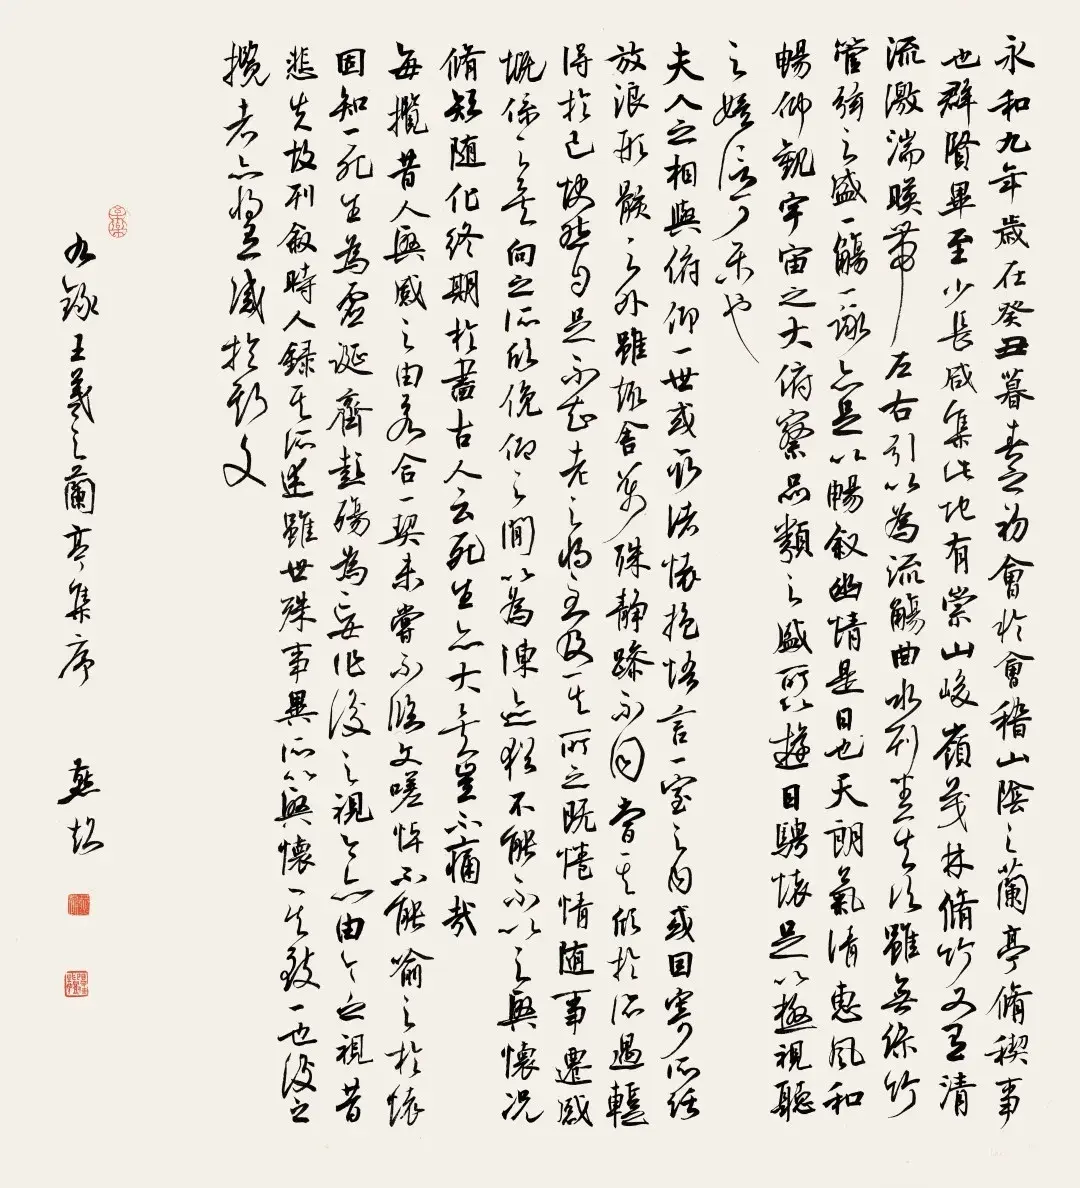 永和九年歲在癸丑暮春之初會於會稽山陰之蘭亭脩稧事
也群賢畢至少長咸集此地有崇山峻嶺茂林脩竹又有清
流激湍暎帶左右引以為流觴曲水列坐其次雖無絲竹
管弦之盛一觴一詠亦足以暢叙幽情是日也天朗氣清惠風和
暢仰觀宇宙之大俯察品類之盛所以遊目騁懷足以極視聽
之娛信可樂也
夫人之相與俯仰一世或取諸懷抱悟言一室之內或因寄所託
放浪形骸之外雖趣舍萬殊靜躁不同當其欣於所遇暫
得於己快然自足不知老之將至及其所之既惓情隨事遷感
慨係之矣向之所欣俛仰之閒以為陳迹猶不能不以之興懷況
脩短随化終期於盡古人云死生亦大矣豈不痛哉
每攬昔人興感之由若合一契未嘗不臨文嗟悼不能喻之於懷
固知一死生為虛誕齊彭殤為妄作後之視今亦由今之視昔
悲夫故列叙時人錄其所述雖世殊事異所以興懷其致一也後之
攬者亦將有感於斯文
右錄王羲之蘭亭集序